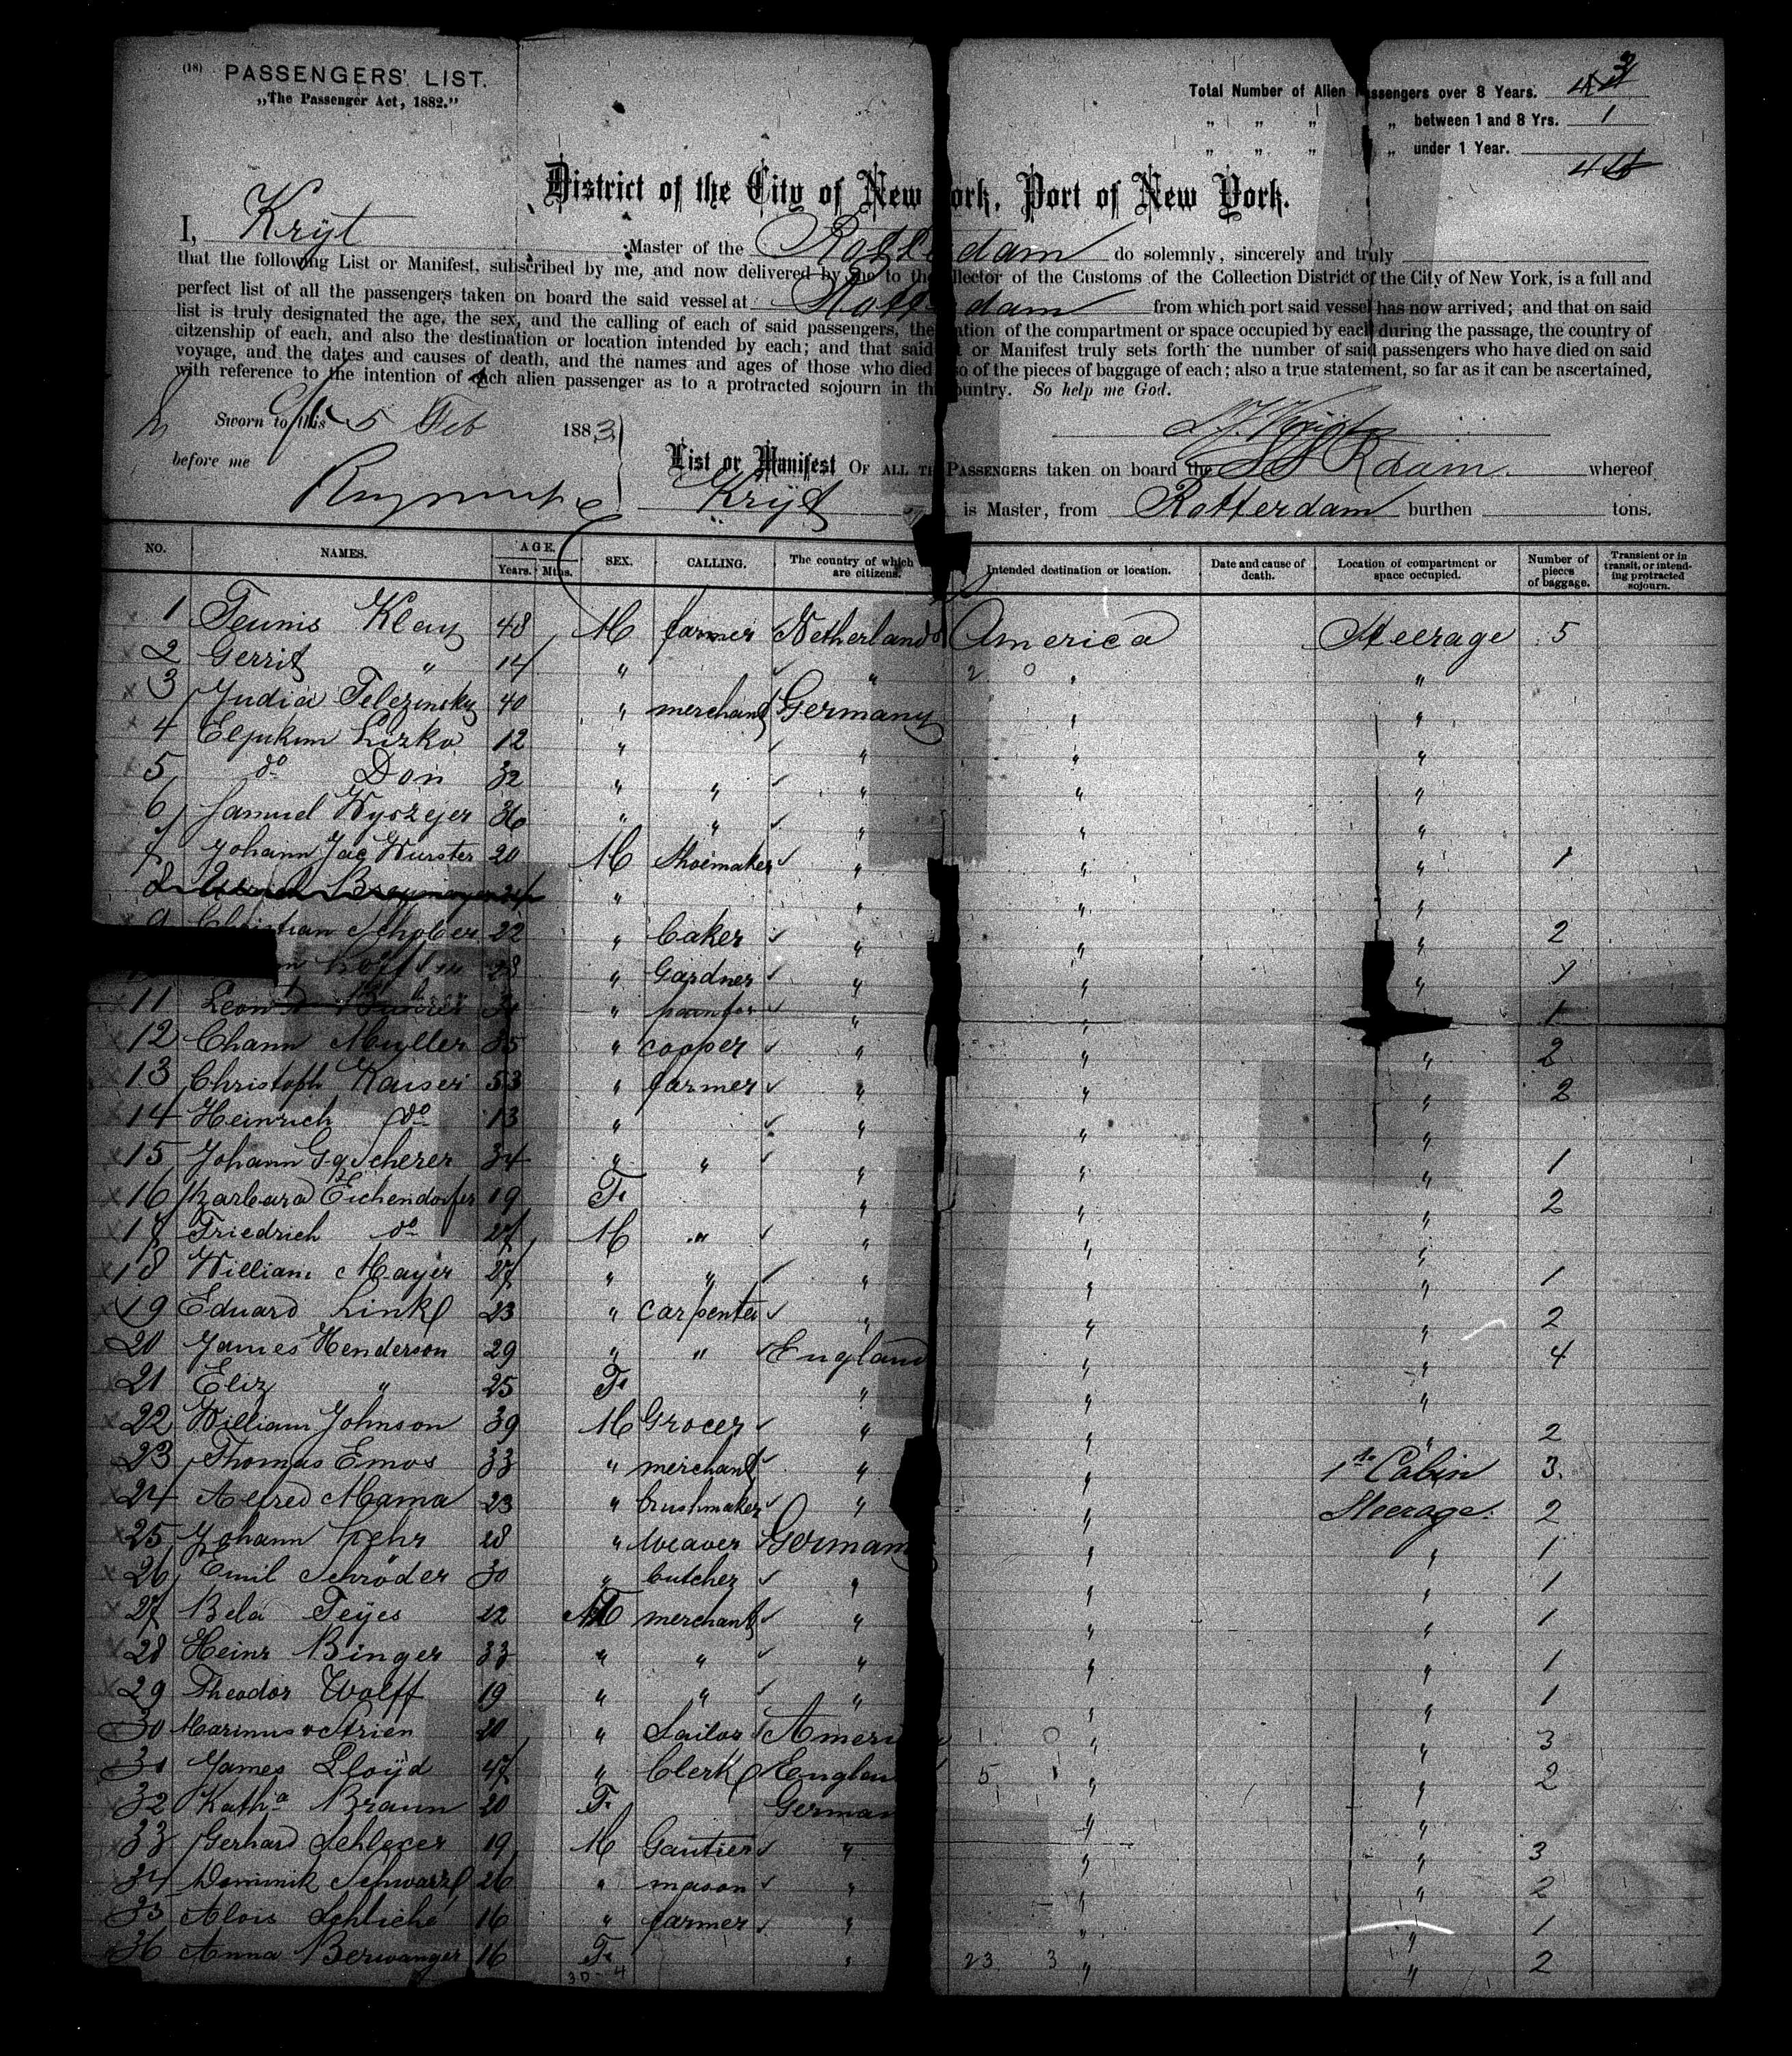 (18) PASSENGERS' LIST.
„The Passenger Act, 1882."
Total Number of Alien Passengers over 8 Years.
„ „ „ „ between 1 and 8 Yrs. 1
„ „ „ „ under 1 Year.
District of the City of New York, Port of New York.
I, Krijt Master of the Rotterdam do solemnly, sincerely and truly
that the following List or Manifest, subscribed by me, and now delivered by me to the Collector of the Customs of the Collection District of the City of New York, is a full and
perfect list of all the passengers taken on board the said vessel at Rotterdam from which port said vessel has now arrived; and that on said
list is truly designated the age, the sex, and the calling of each of said passengers, the location of the compartment or space occupied by each during the passage, the country of
citzenship of each, and also the destination or location intended by each; and that said List or Manifest truly sets forth the number of said passengers who have died on said
voyage, and the dates and causes of death, and the names and ages of those who died also of the pieces of baggage of each; also a true statement, so far as it can be ascertained,
with reference to the intention of each alien passenger as to a protracted sojourn in this country. So help me God.
Sworn to this 5 Feb 1883
before me
List or Manifest OF ALL THE PASSENGERS taken on board the SS Rdam whereof
Krijt is Master, from Rotterdam burthen tons.
NO. NAMES. AGE. Years. Mths. SEX. CALLING. The country of which are citizens. Intended destination or location. Date and cause of death. Location of compartment or space occupied. Number of pieces of baggage. Transient or in transit, or intending protracted sojourn.
1 Teunis Kley 48 M farmer Netherland America Steerage 5
2 Gerrit " 14 " " 2 0 " "
3 Judia Telezinsky 40 " merchant Germany " "
4 Eljukim Lizko 12 " " " "
5 do Don 32 " " " " "
6 Samuel Wyszejer 36 " " " " "
7 Johann Jac Wurster 20 M Shoemaker " " " 1
8 " " " "
9 Christian Schober 22 " baker " " " 2
" Gardner " " " 1
11 " " " " 1
12 Chann Muller 35 " copper " " " 2
13 Christoph Kaiser 53 " farmer " " " 2
14 Heinrich do 13 " " " "
15 Johann Gg Scherer 34 " " " " " 1
16 Barbara Eichendorfer 19 F. " " " 2
17 Friedrich do 27 M " " " "
18 William Mayer 27 " " " " " 1
19 Eduard Link 23 " carpenter " " " 2
20 James Henderson 29 " " England " " 4
21 Eliz " 25 F. " " "
22 William Johnson 39 M Grocer " " " 2
23 Thomas Emos 33 " merchant " " 1st Cabin 3
24 Alfred Mama 23 " brushmaker " " Steerage 2
25 Johann Lehr 28 " weaver German " " 1
26 Emil Schröder 30 " butcher " " " 1
27 Bela Tejes 22 M merchant " " " 1
28 Heinr Binger 33 " " " " " 1
29 Theodor Wolff 19 " " " " " 1
30 Marinus v Strien 20 " Sailor Ameri 1 0 " " 3
31 James Lloyd 47 " Clerk Englan 5 1 " " 2
32 Katha Braun 20 F. German " "
33 Gerhard Schlecer 19 M Gautier " " " 3
34 Dominik Schwarz 26 " mason " " " 2
35 Alois Schliche 16 " farmer " " " 1
36 Anna Berwanger 16 F. " 23 3 " " 2
30-4